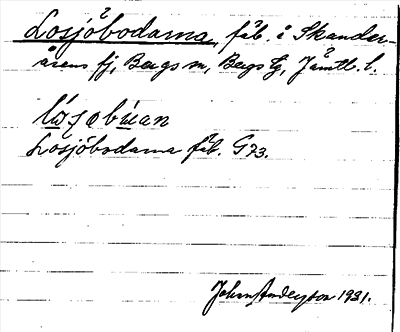 Losjöbodarna, fäb. i Skander-
åsens fj, Bergs sn, Bergs tg, Jämtl. l.
lós̯ǝbùan
Losjöbodarna fäb. G73.
Johan Anderson 1931.